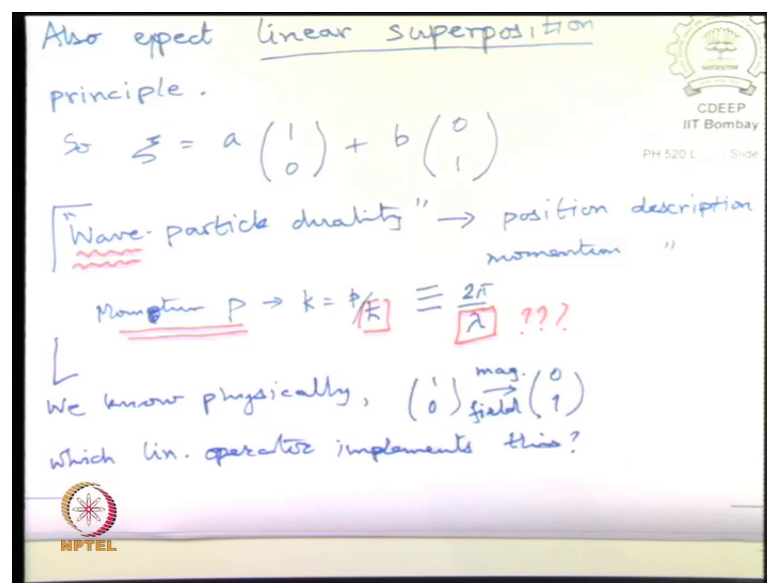 Also expect linear superposition
CDEEP
IIT Bombay
principle.
PH 520 L Slide
So ξ = a (1 0) + b (0 1)
"Wave-particle duality" → position description
momentum "
Momentum p → k = p/ħ ≡ 2π/λ ???
We know physically, (1 0) mag. field → (0 1)
which lin. operator implements this?
NPTEL